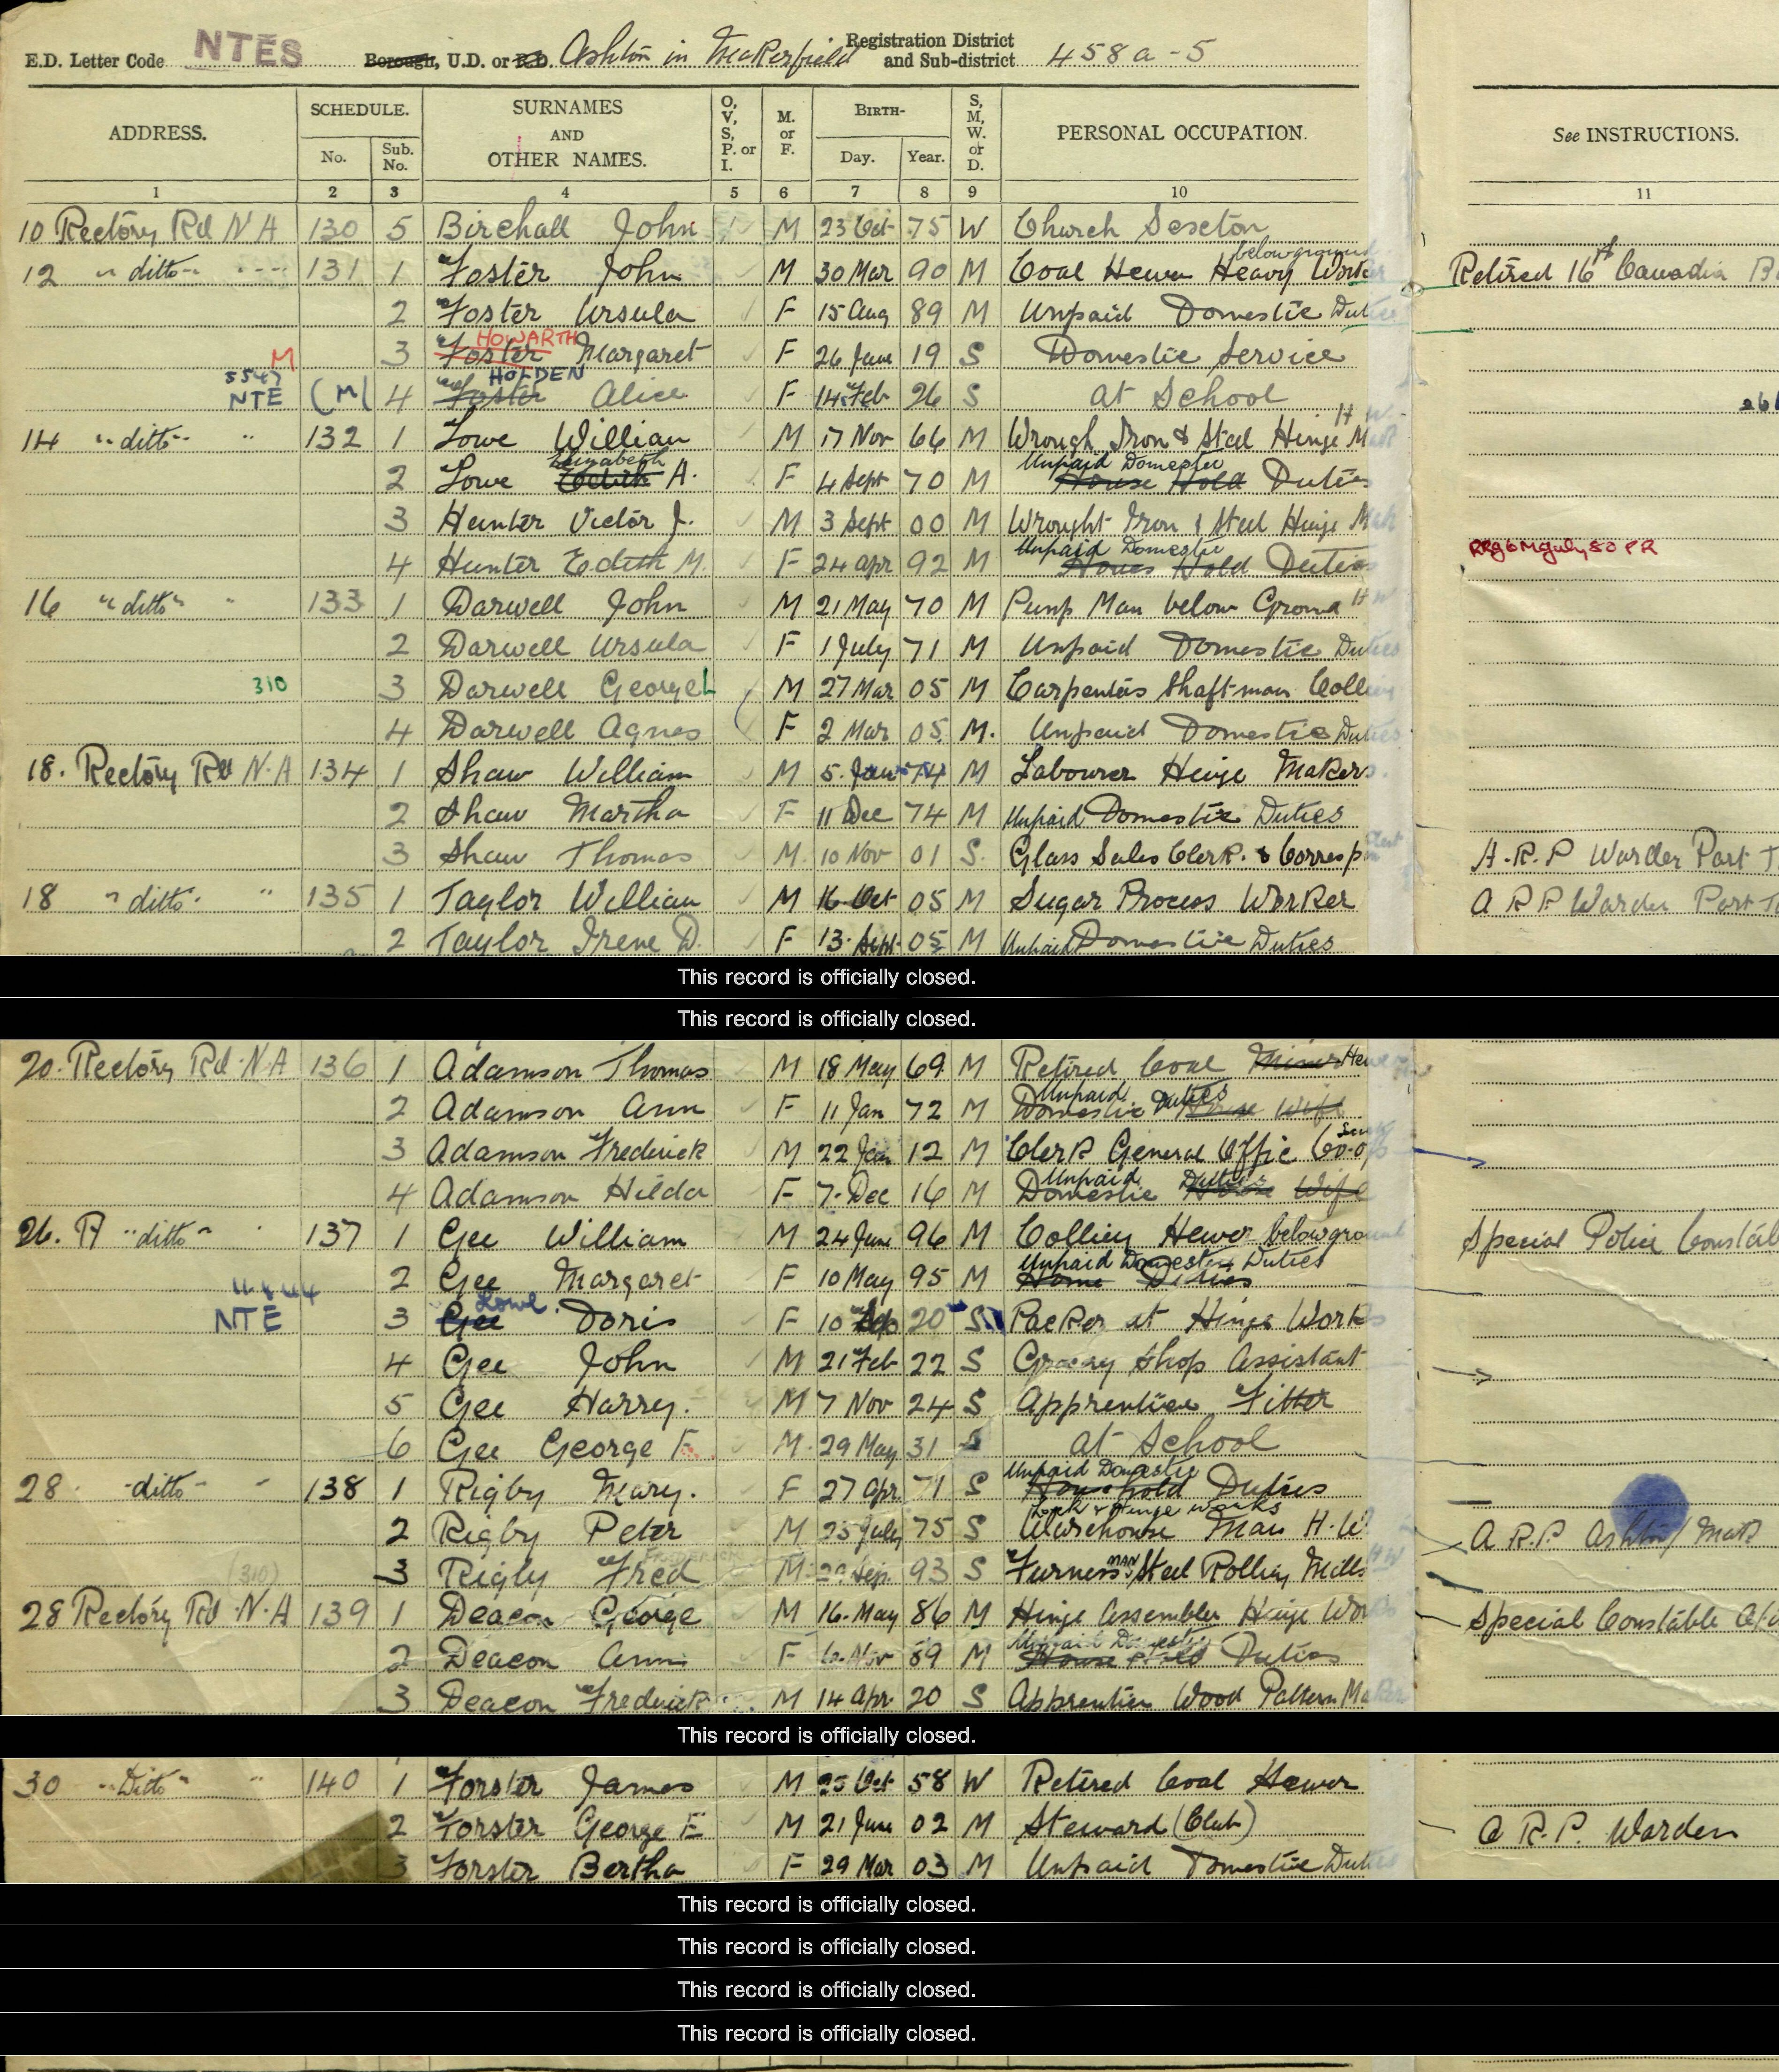 E.D. Letter Code NTES Borough, U.D. or R.D. Ashton in Makerfield Registration District and Sub-district 458a-5
ADDRESS. SCHEDULE. No. Sub. No. SURNAMES AND OTHER NAMES. O, V, S, P. or I. M. or F. BIRTH- Day. Year. S, M, W. or D. PERSONAL OCCUPATION. See INSTRUCTIONS.
1 2 3 4 5 6 7 8 9 10 11
10 Rectory Rd N A 130 5 Birchall John M 23 Oct 75 W Church Sexeton
belowground
12 " ditto " 131 1 Foster John M 30 Mar 90 M Coal Hewer Heavy Work Retired 16th Canadia
2 Foster Ursula F 15 Aug 89 M Unpaid Domestic Duties
HOWARTH
M 3 Foster Margaret F 26 June 19 S Domestic Service
HOLDEN
NTE (M( 4 Foster Alice F 14 Feb 26 S at School
14 " ditto " 132 1 Lowe William M 17 Nov 66 M Wrough Iron & Steel Hinge H W
Elizabeth Unpaid Domestic
2 Lowe Edith A. F 4 Sept 70 M House Hold Duties
3 Hunter Victor J. M 3 Sept 00 M Wrought Iron & Steel Hinge
Unpaid Domestic
4 Hunter Edith M. F 24 Apr 92 M Hold Duties
16 " ditto " 133 1 Darwell John M 21 May 70 M Pump Man below Ground H W
2 Darwell Ursula F 1 July 71 M Unpaid Domestic Duties
310 3 Darwell George L M 27 Mar 05 M Carpenters Shaftman
4 Darwell Agnes F 2 Mar 05 M. Unpaid Domestic Duties
18. Rectory Rd N.A 134 1 Shaw William M 5. 74 M Labourer Hinge Makers.
2 Shaw Martha F 11 Dec 74 M Unpaid Domestic Duties
3 Shaw Thomas M. 10 Nov 01 S. Glass Sales Clerk. & Corresp A.R.P Warder Part
18 " ditto " 135 1 Taylor William M 16 Oct 05 M Sugar Process Worker A R P Warder Part
2 Taylor Irene D. F 13 Sept 05 M Unpaid Domestic Duties
This record is officially closed.
This record is officially closed.
20. Rectory Rd N.A 136 1 Adamson Thomas M 18 May 69 M Retired Coal Miner
Unpaid Duties
2 Adamson Ann F 11 Jan 72 M Domestic House Wife
3 Adamson Frederick M 22 Jan 12 M Clerk General Offic Co-op
Unpaid Duties
4 Adamson Hilda F 7. Dec 16 M Domestic House Wife
26. R " ditto " 137 1 Gee William M 24 June 96 M Colliery Hewer belowground Special Police
Unpaid Domestic Duties
2 Gee Margaret F 10 May 95 M Home Duties
Lowe
NTE 3 Gee Doris F 10 20 S Packer at Hinge Works
4 Gee John M 21 Feb 22 S Grocery Shop Assistant
5 Gee Harry. M 7 Nov 24 S Apprentice Fitter
6 Gee George F. M. 29 May 31 S at School
Unpaid Domestic
28 ditto 138 1 Rigby Mary. F 27 Apr 71 S Household Duties
Lock & Hinge works
2 Rigby Peter M 25 July 75 S Warehouse Man H.W A R.P Ashton/
MAN
3 Rigby Fred M 29 Sep 93 S Furness Steel Rolling Mills H W
(310)
28 Rectory Rd N.A 139 1 Deacon George M 16. May 86 M Hinge Assembler Hinge Works Special Constable
Unpaid Domestic
2 Deacon Ann F 6 Nov 89 M House Hold Duties
3 Deacon Frederick M 14 Apr 20 S Apprentice Wood Pattern Maker
This record is officially closed.
30 " Ditto " 140 1 Forster James M 25 Oct 58 W Retired Coal Hewer
2 Forster George E M 21 June 02 M Steward (Club) A R.P. Warden
3 Forster Bertha F 29 Mar 03 M Unpaid Domestic Duties
This record is officially closed.
This record is officially closed.
This record is officially closed.
This record is officially closed.